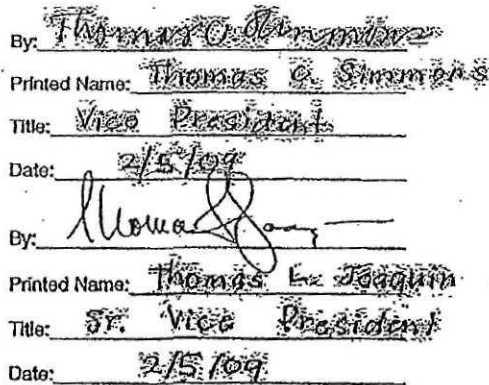 By: Thomas O. Simmons
Printed Name: Thomas O. Simmons
Title: Vice President
Date: 2/5/09
By: Thomas
Printed Name: Thomas L. Joaquin
Title: Sr. Vice President
Date: 2/5/09